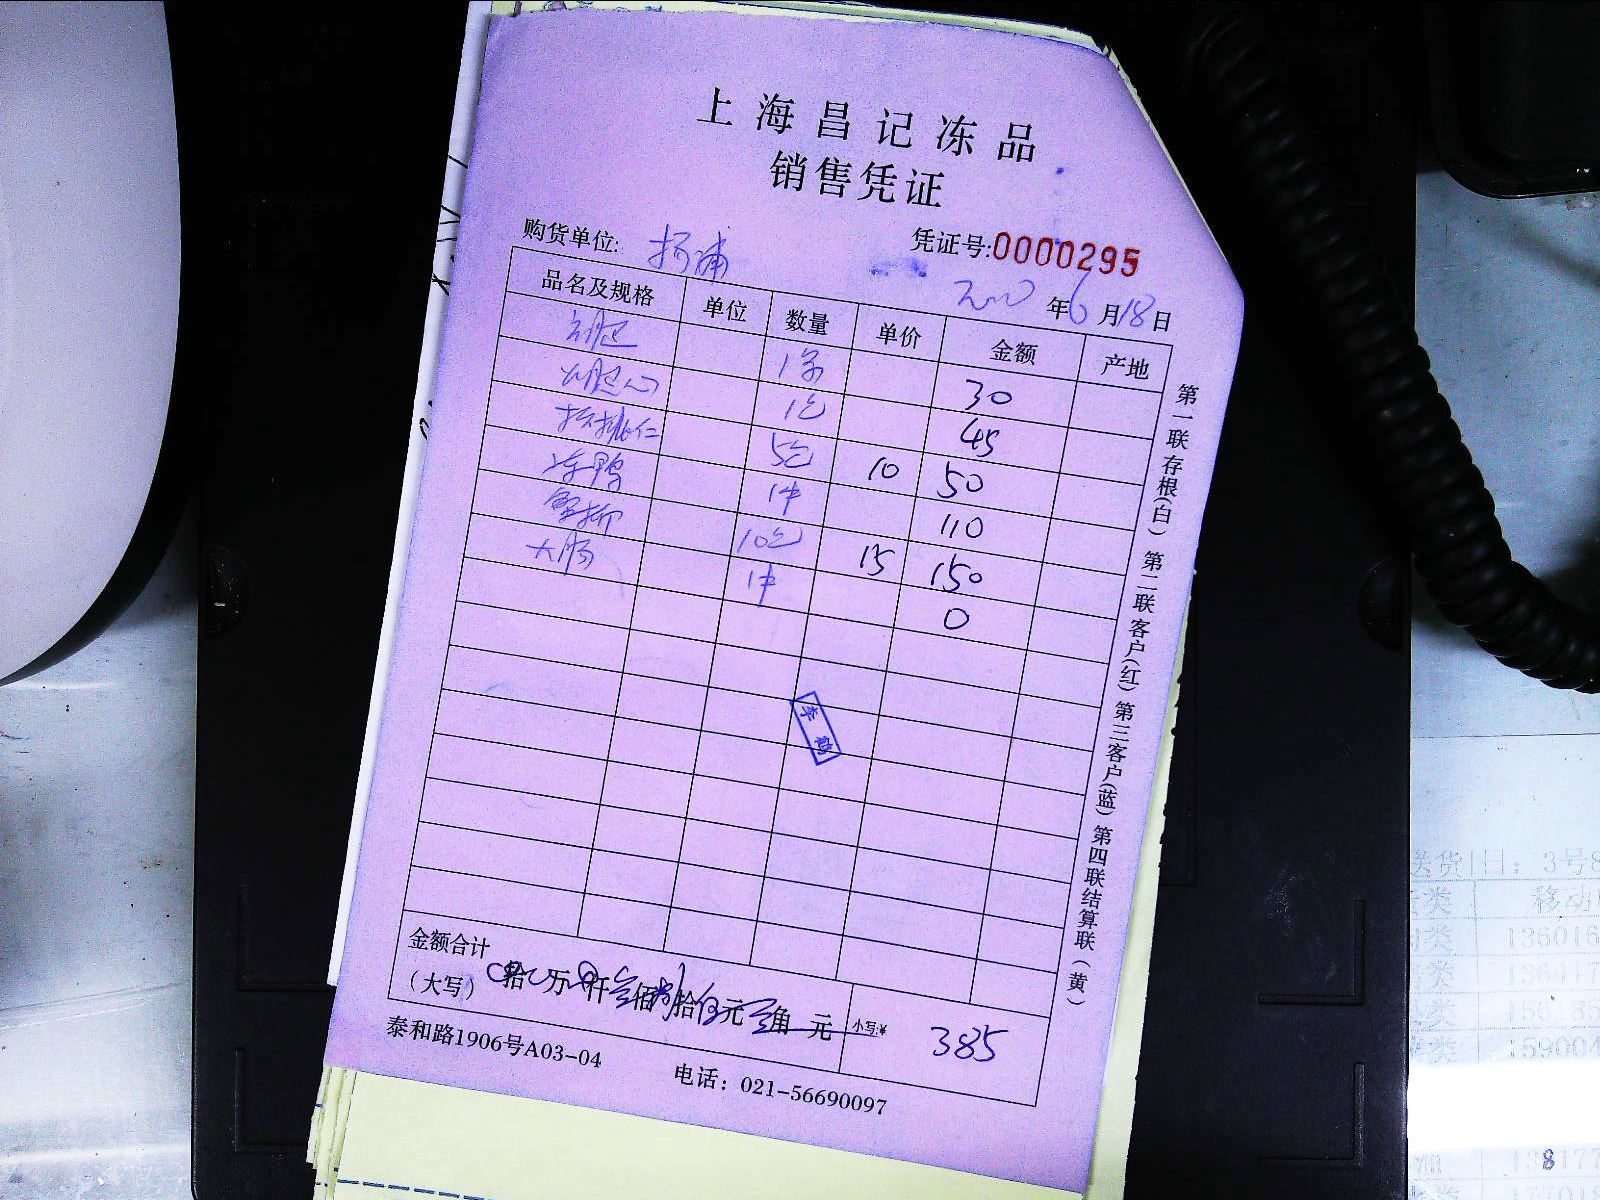 上海昌记冻品
销售凭证
购货单位: 杨浦 凭证号:0000295
年6月18日
品名及规格 单位 数量 单价 金额 产地
30
1包 45
5包 10 50
冻鸭 1件 110
10包 15 150
大肠 1件 0
李鹤
第一联存根(白) 第二联客户(红) 第三客户(蓝) 第四联结算联(黄)
金额合计
(大写) 拾 万 仟叁佰捌拾伍元 角 元 小写:¥ 385
泰和路1906号A03-04 电话: 021-56690097
送货日: 3号8
类 移动
类 136016
类
类
类 159004